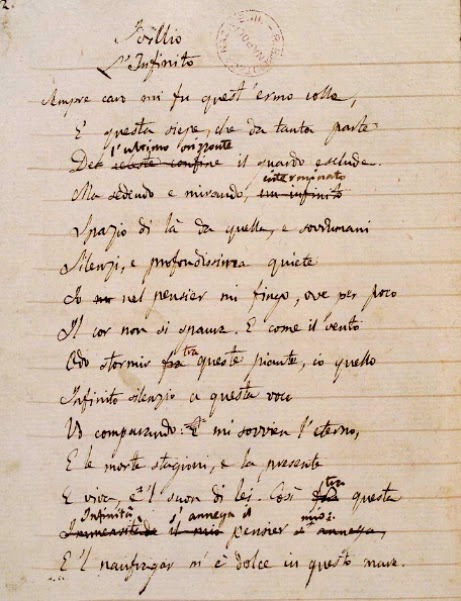 2.
Idillio
L'Infinito
Sempre caro mi fu quest'ermo colle,
E questa siepe, che da tanta parte
l'ultimo orizzonte
De celeste confine il guardo esclude.
interminato
Ma sedendo e mirando, un infinito
Spazio di là da quella, e sovrumani
Silenzi, e profondissima quiete
Io nel pensier mi fingo, ove per poco
Il cor non si spaura. E come il vento
tra
Odo stormir fra queste piante, io quello
Infinito silenzio a questa voce
Vo comparando: E mi sovvien l'eterno,
E le morte stagioni, e la presente
tra
E viva, e 'l suon di lei. Così fra questa
Infinità s'annega il mio:
Immensitade il mio pensier s'annega,
E 'l naufragar m'è dolce in questo mare.